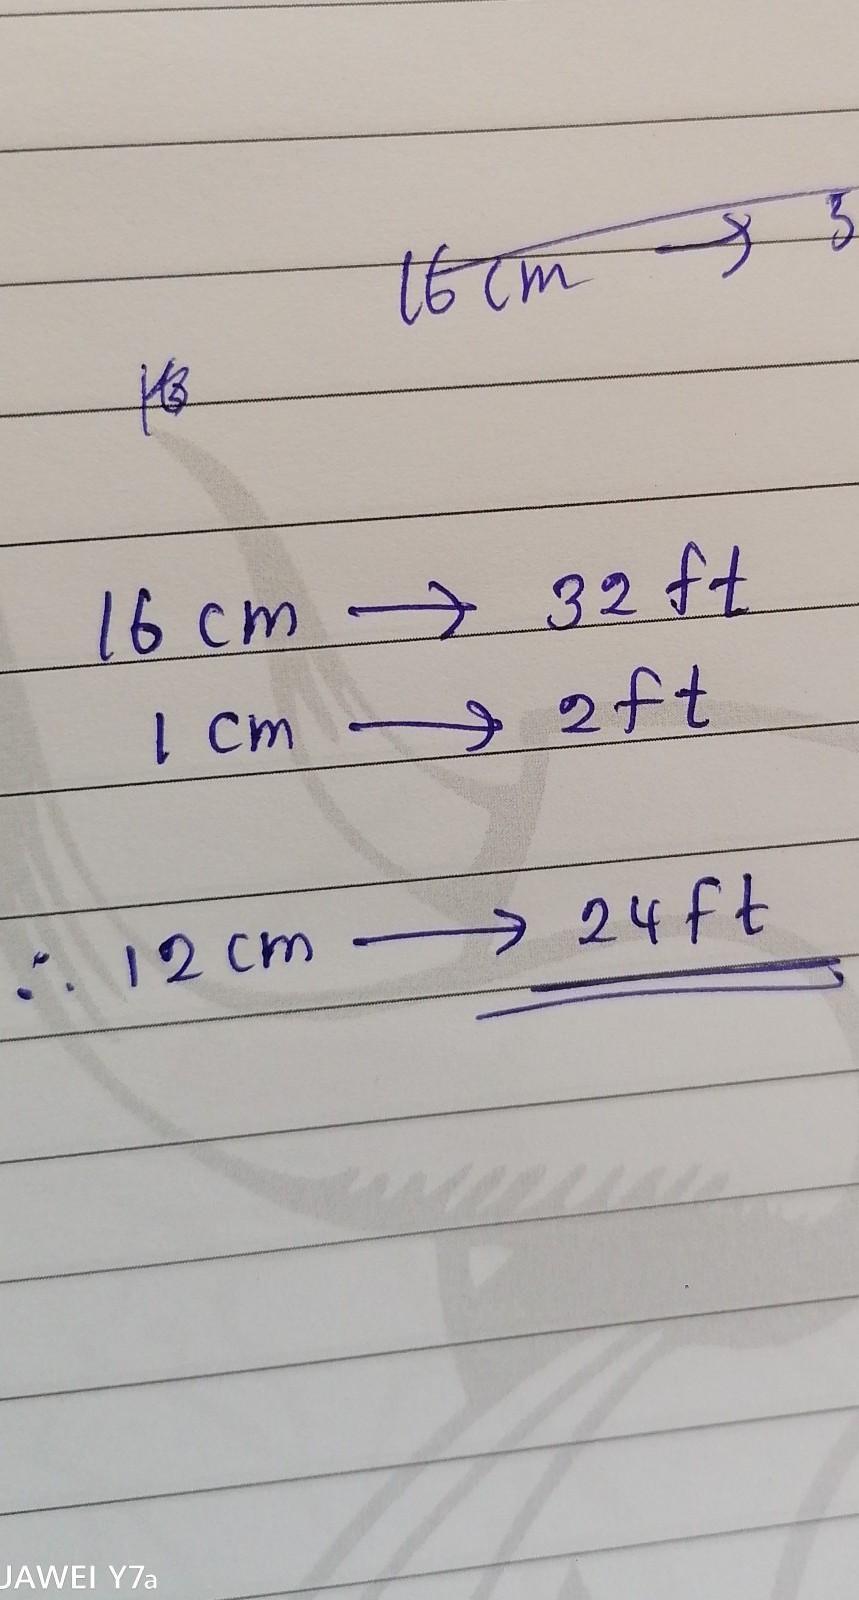 16 cm → 3
16 cm → 32 ft
1 cm → 2 ft
∴ 12 cm → 24 ft
JAWEI Y7a